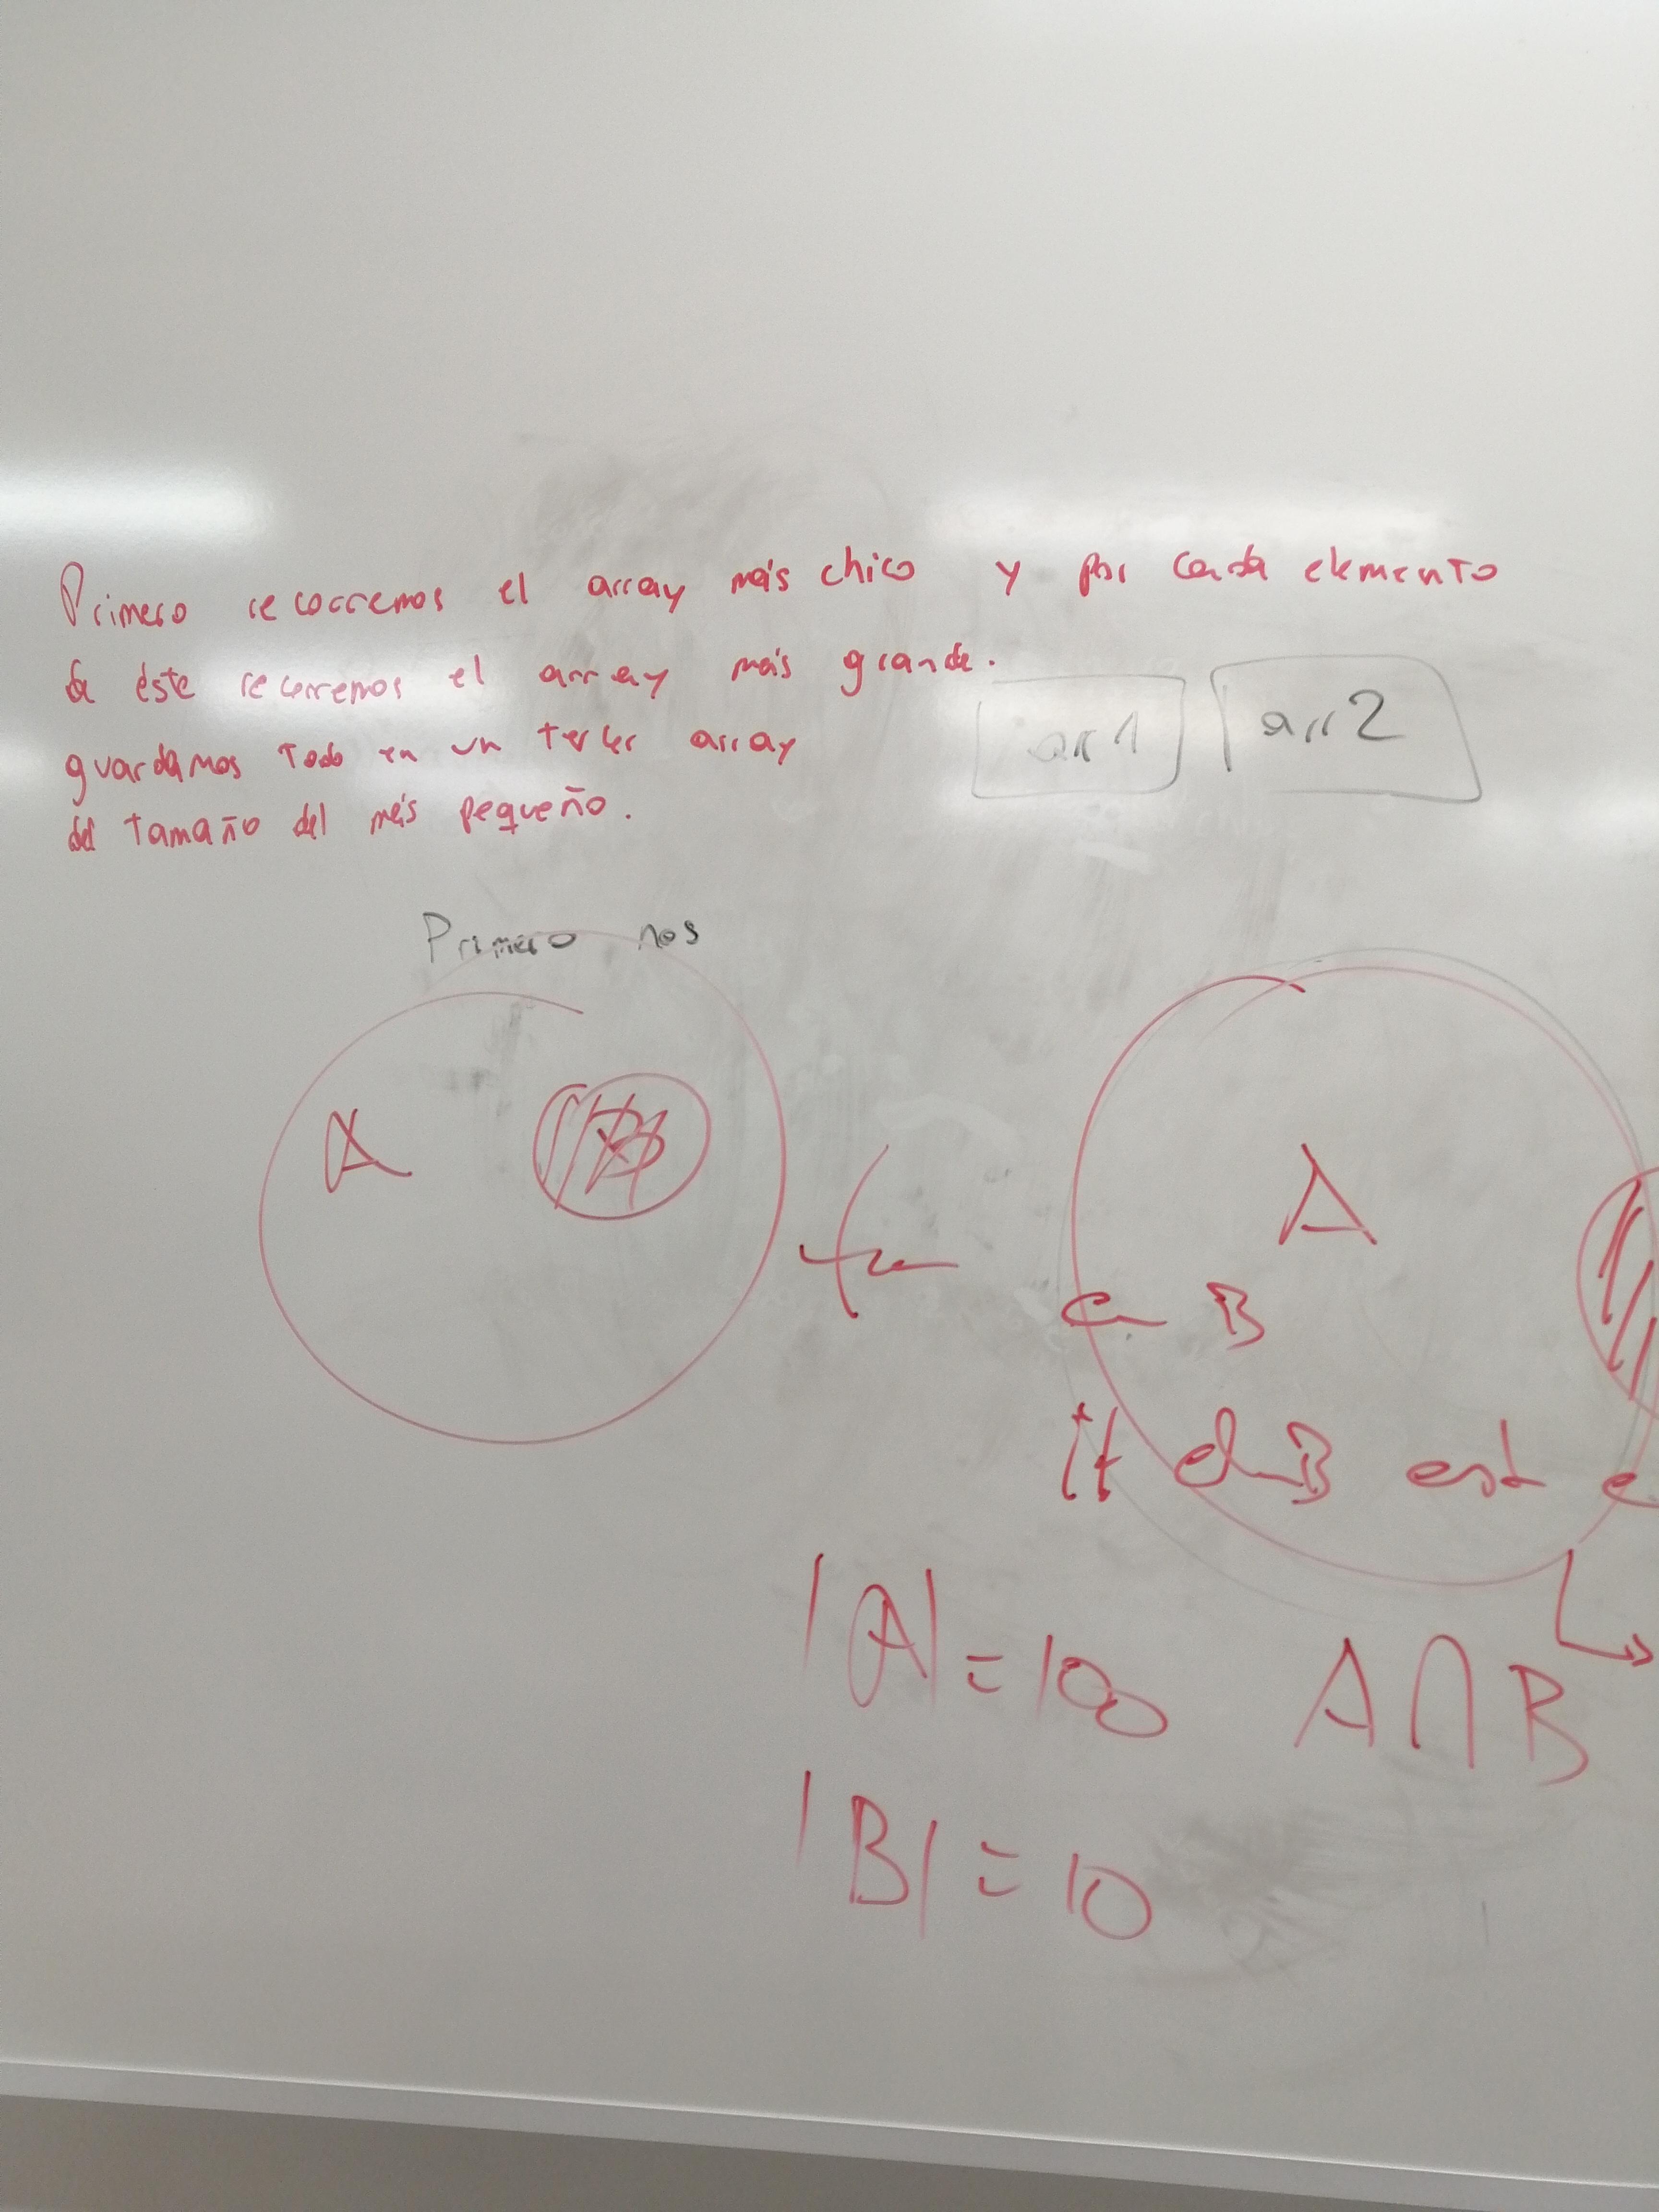 Primero recorremos el array más chico y por cada elemento
de éste recorremos el array más grande.
guardamos todo en un tercer array
del tamaño del más pequeño.
arr 1
arr 2
Primero nos
A
B
A
en B
if el B est
|A| = 100
A∩B
|B| = 10